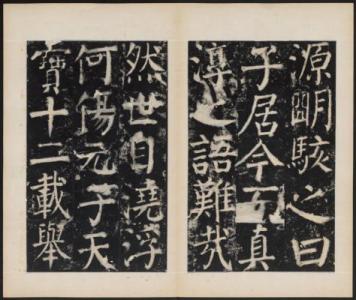 源明駭之曰
子居今而真
淳之語難哉
然世自澆浮
何傷元子天
寶十二載舉